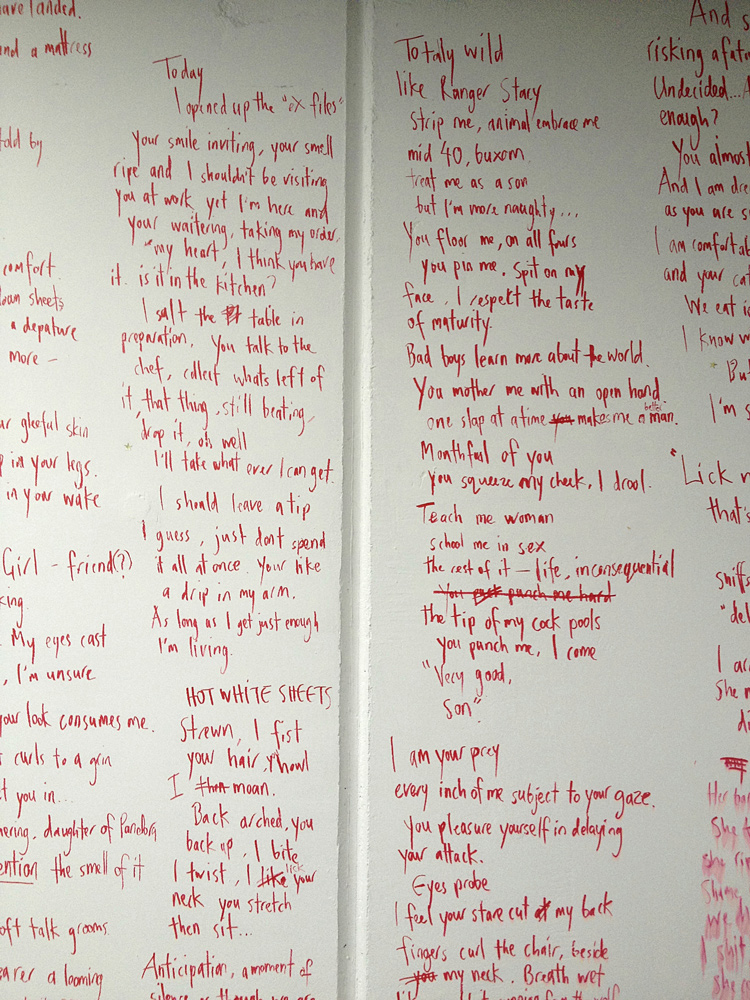 have landed.
and a mattress
told by
comfort
sheets
a depature
more –
gleeful skin
in your legs.
in your wake
Girl – friend(?)
king.
My eyes cast
, I'm unsure
your look consumes me.
curls to a grin
you in...
daughter of Pandora
the smell of it
soft talk grooms
a looming
Today
I opened up the "eX files"
Your smile inviting, your smell
ripe and I shouldn't be visiting
you at work, yet I'm here and
your waitering, taking my order.
"my heart, I think you have
it. is it in the kitchen?
I salt the table in
preparation. You talk to the
chef, collect whats left of
it, that thing, still beating,
drop it, oh well
I'll take what ever I can get.
I should leave a tip
I guess, just dont spend
it all at once. Your like
a drip in my arm.
As long as I get just enough
I'm living.
HOT WHITE SHEETS
Strewn, I fist
your hair, howl
I then moan.
Back arched, you
back up, I bite
I twist, I like lick your
neck you stretch
then sit...
Anticipation, a moment of
silence as though we are
Totaly wild
like Ranger Stacy
Strip me, animal embrace me
mid 40, buxom
treat me as a son
but I'm more naughty...
You floor me, on all fours
you pin me. Spit on my
face, I respekt the taste
of maturity.
Bad boys learn more about the world.
You mother me with an open hand.
one slap at a time you makes me a better man.
Mouthful of you
you squeeze my cheek, I drool.
Teach me woman
school me in sex
the rest of it – life, inconsequential
You punch me hard
the tip of my cock pools
you punch me, I come
"Very good,
Son"
I am your prey
every inch of me subject to your gaze.
You pleasure yourself in delaying
your attack.
Eyes probe
I feel your stare cut at my back
fingers curl the chair, beside
you my neck. Breath wet
And s
risking a
Undecided...
enough?
You almost
And I am
as you are
I am
and your
We eat
I know
But
I'm s
"Lick
that's
sniffs
"del
I
She
Her
She
she
Shame,
we
I
she